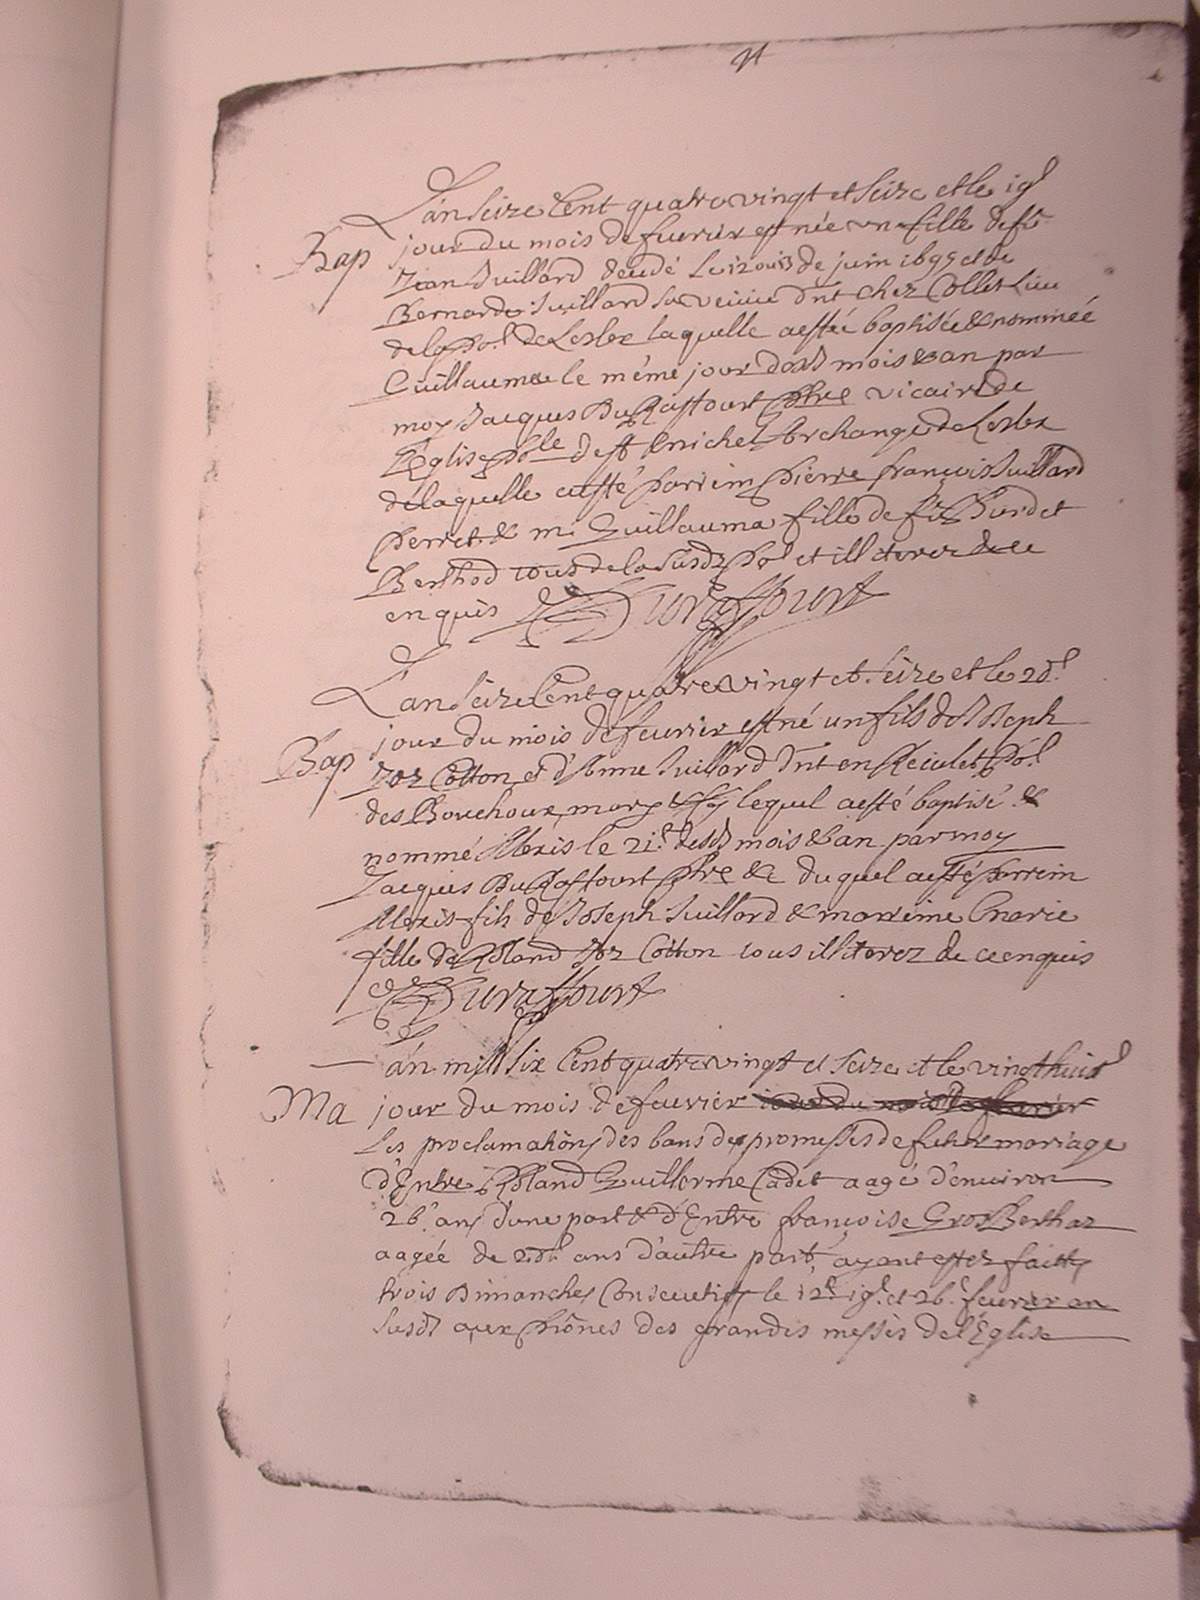 L'an seize cent quatre vingt et seize et le 19e
Bap jour du mois de feuvrier est née un fille de fû
Jean Vuillard decedé le 12 ou 13 de juin 1695 et de
Bernarde Vuillard sa veuue dnt chez Collet lieu
de la de Lesler laquelle aesté baptisée & nommée
Guillauma le méme jour desd mois & an par
moy Jacques Duraffourt pbre vicaire de
l'Église de st Michel Archange de Lesler
de laquelle aesté parrein pierre françois Vuillard
perret & m. Guillauma fille de
Berthod tous de la susd et illiterez de ce
enquis Duraffourt
L'an seize Cent quatre vingt et seize et le 20e
Bap jour du mois de feuvrier est né un fils de Joseph
Joz Cotton et d'Anne Vuillard dnt en
des Bouchoux mary & lequel aesté baptisé &
nommé Alexis le 21e desd mois & an par moy
Jacques Duraffourt pbre &c duquel aesté parrein
Alexis fils de Joseph Vuillard & marreine Marie
fille de Roland Joz Cotton tous illiterez de ce enquis
Duraffourt
L'an mill six Cent quatre vingt et seize et le vingt huit
Ma jour du mois de feuvrier
Les proclamations des bans de promesses de futur mariage
d'Entre Roland Guillerme Cadet aagé d'enuiron
26 ans d'une part & d'Entre françoise Gros Berthaz
aagée de ans d'autre part ayant estez faittes
trois Dimanches Consecutifs le 12e 19e et 26e feuvrier an
susd aux prônes des grandes messes de l'Église